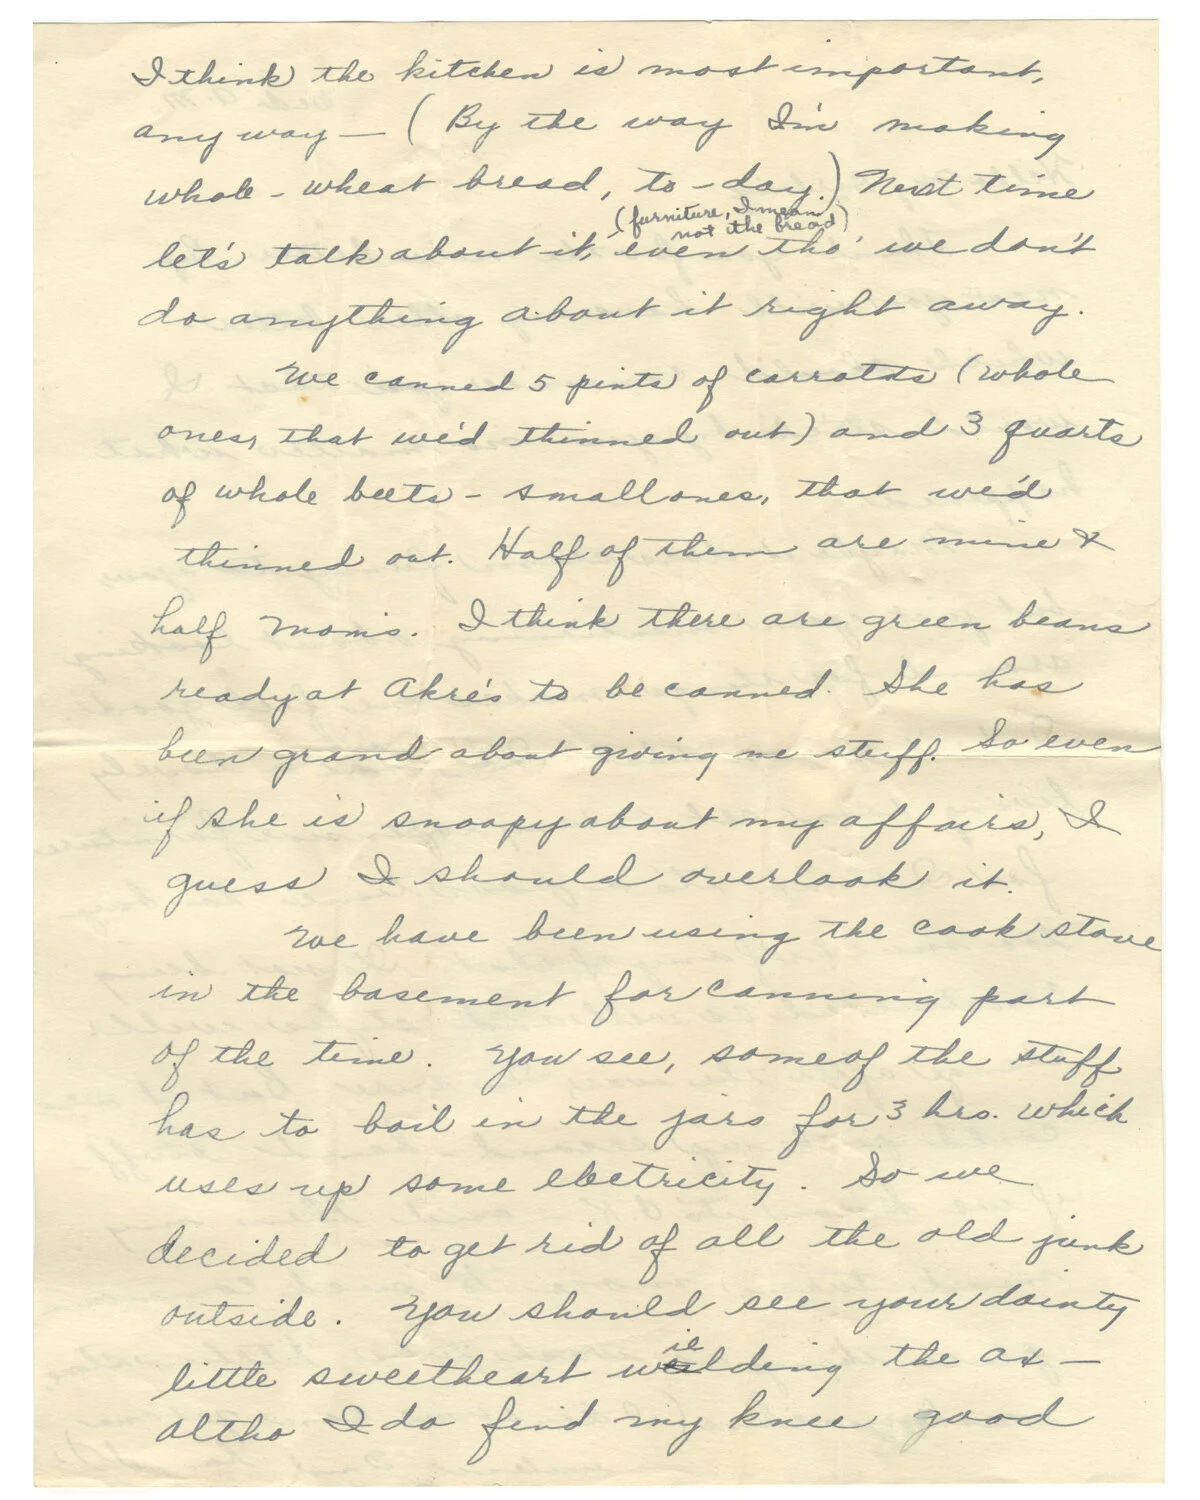 I think the kitchen is most important,
any way — ( By the way I'm making
whole - wheat bread, to - day.) Next time
(furniture, I mean
not the bread)
let's talk about it, even tho' we don't
do anything about it right away.
We canned 5 pints of carrots (whole
ones, that we'd thinned out) and 3 quarts
of whole beets - small ones, that we'd
thinned out. Half of them are mine &
half Mom's. I think there are green beans
ready at Akre's to be canned. She has
been grand about giving me stuff. So even
if she is snoopy about my affairs, I
guess I should overlook it.
We have been using the cook stove
in the basement for canning part
of the time. You see, some of the stuff
has to boil in the jars for 3 hrs. which
uses up some electricity. So we
decided to get rid of all the old junk
outside. You should see your dainty
little sweetheart wielding the ax —
altho I do find my knee good